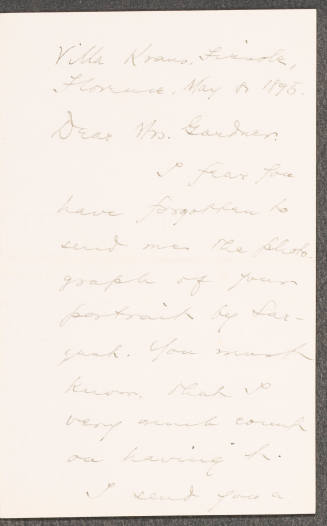 Villa Kraus, Fiesole,
Florence. May 8 1895.
Dear Mrs. Gardner.
I fear you
have forgotten to
send me the photo-
graph of your
portrait by Sar-
gent. You must
know that I
very much count
on having it.
I send you a